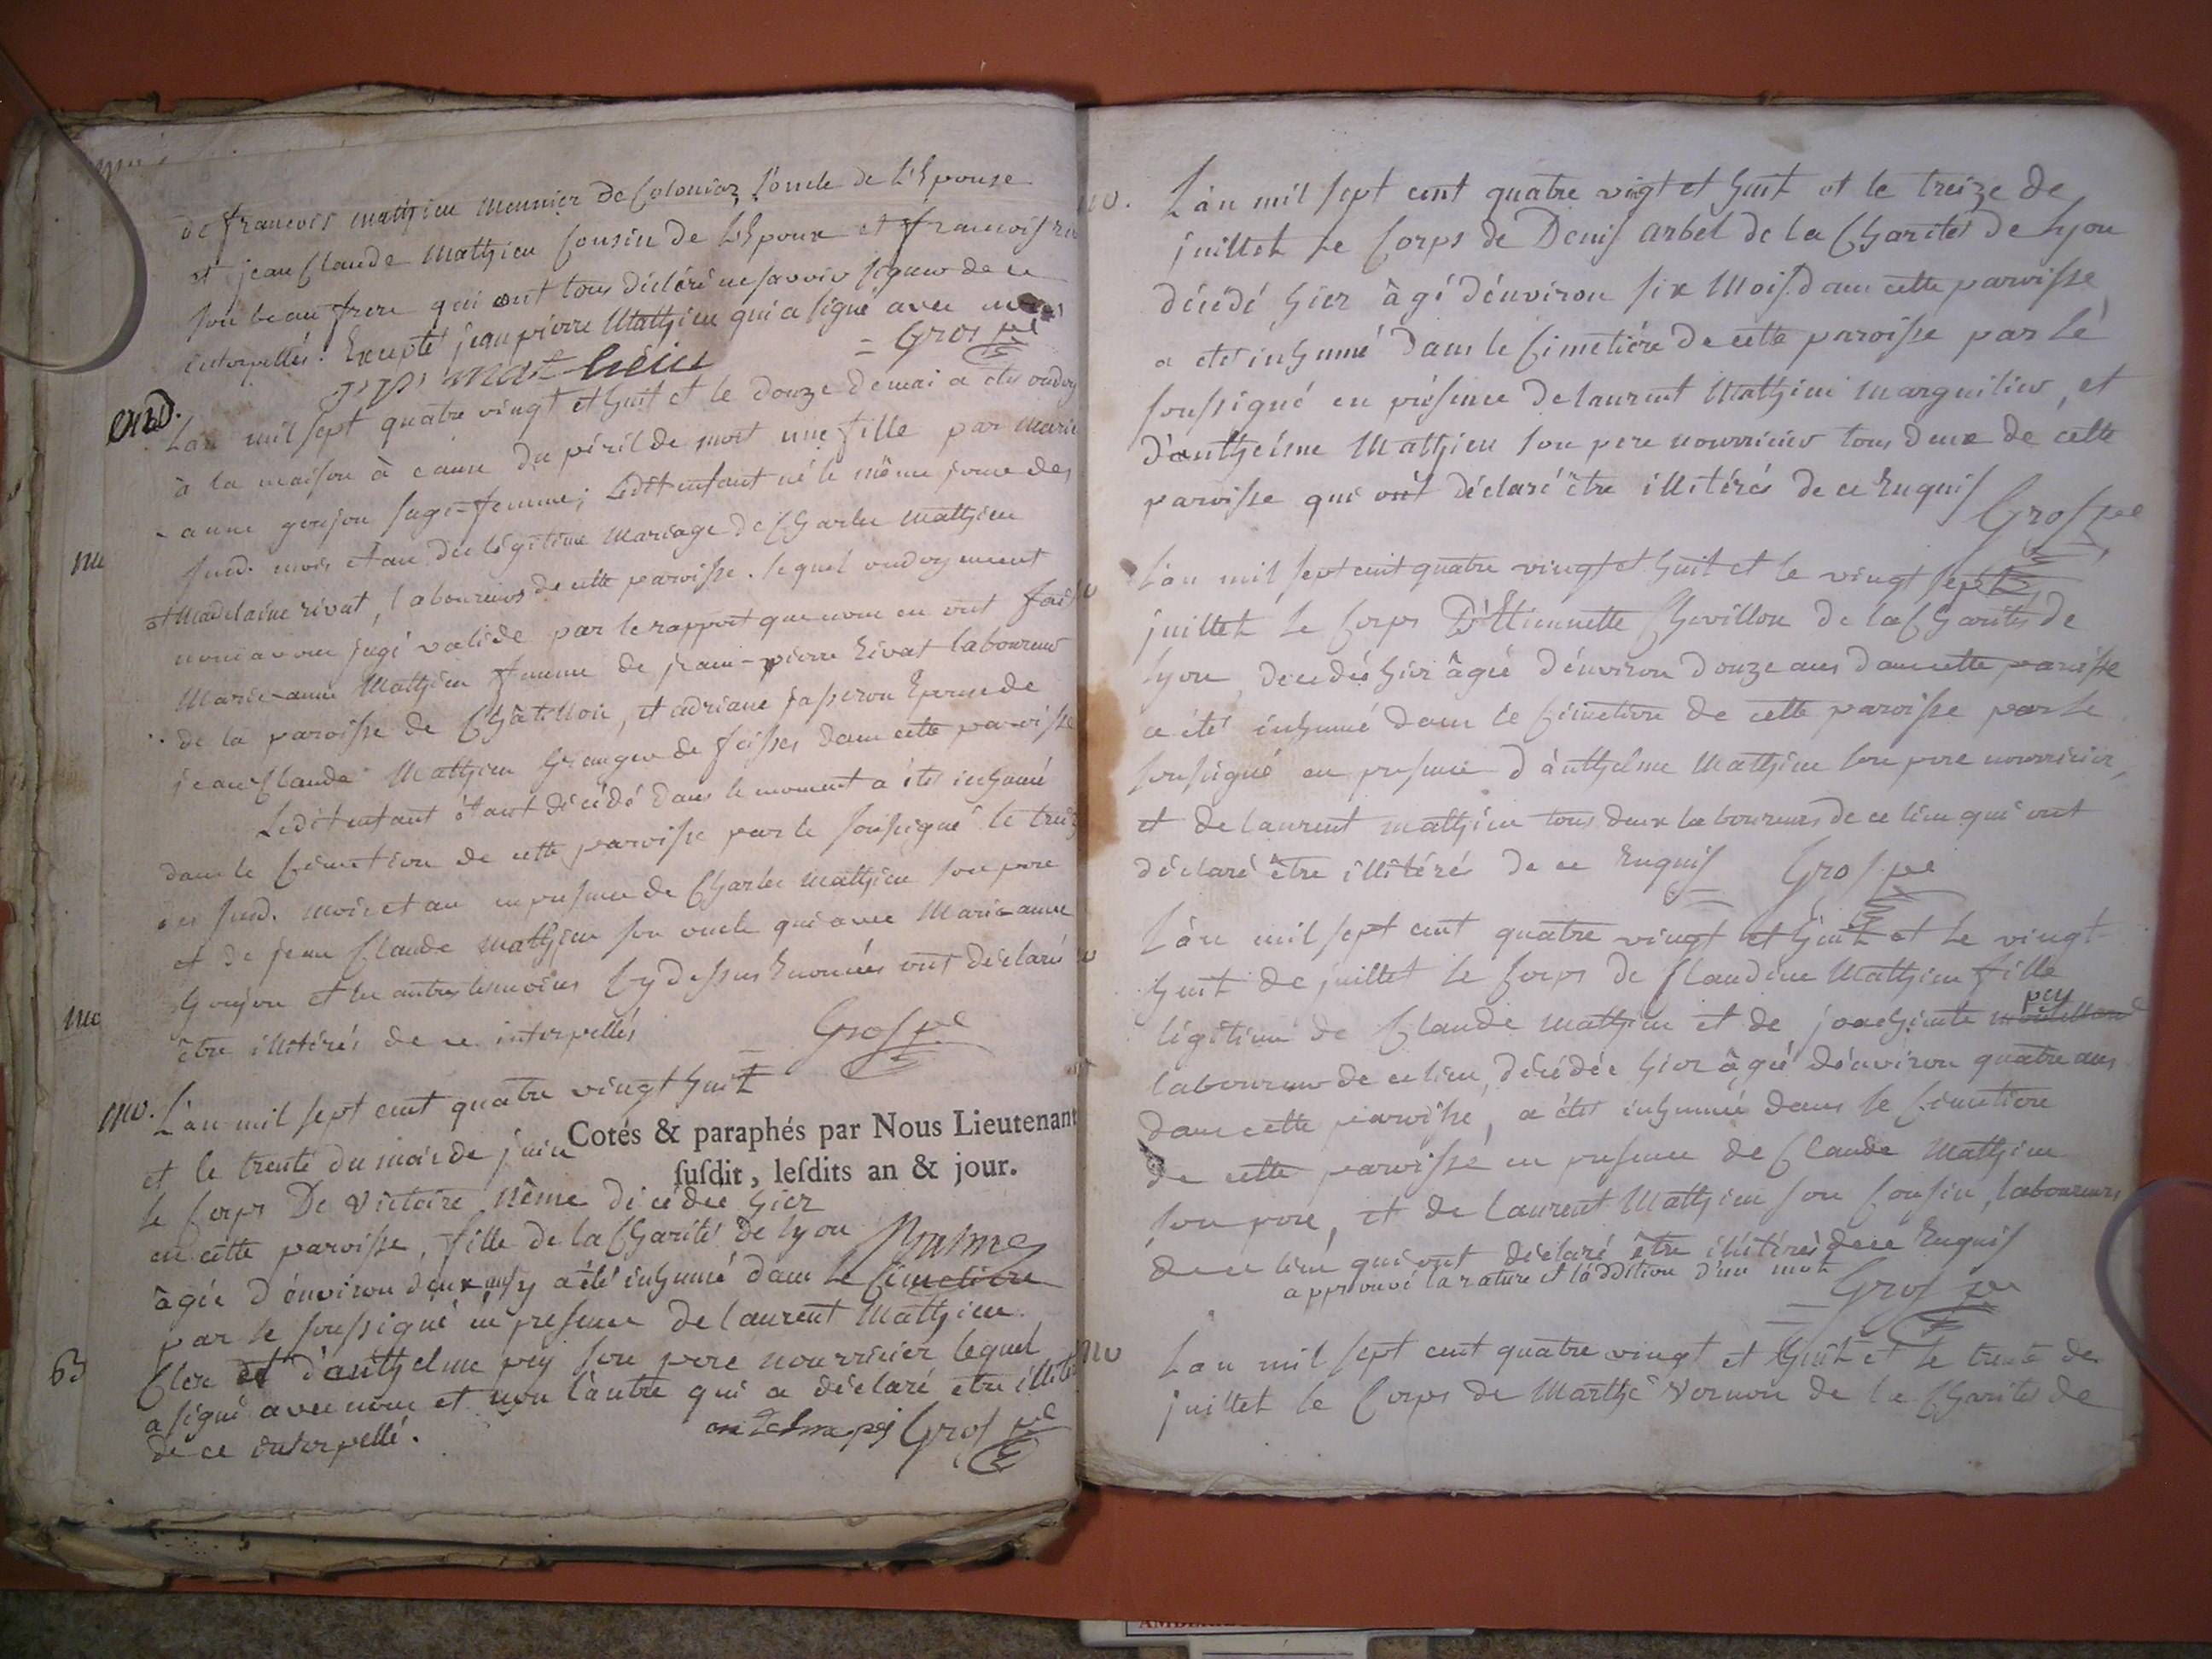 de francois mathieu meunier de Coloniaz l'oncle de L'Epouse
et jean Claude Mathieu Cousin de L'Epoux et francois
son beau frere qui ont tous déclaré ne savoir signer de ce
interpellés. Excepté jean pierre Mathieu qui a signé avec
= Gros
mathieu
ond.
L'an mil sept quatre vingt et huit et le douze de mai a été ondoy
à la maison à cause du péril de mort une fille par Marie
anne goujon sage=femme; Ledit enfant né le même jour des
susd. mois et an du légitime Mariage de Charles Mathieu
et Madelaine rivat, laboureurs de cette paroisse. lequel ondoyement
nous avons jugé valide par le rapport que nous en ont fait
Marie-anne Mathieu femme de jean-pierre Rivat laboureur
de la paroisse de Châtillon, et adriane jasseron Epouse de
jean Claude Mathieu Granger de faisses dans cette paroisse
Ledit enfant étant décédé dans le moment a été inhumé
dans le Cimetiere de cette paroisse par le soussigné le treiz
des susd. mois et an en presence de Charles Mathieu son pere
et de jean Claude Mathieu son oncle qui avec Marie-anne
Goujon et les autres témoins Cy dessus Enoncées ont déclaré
être illitérés de ce interpellés
Gros
mo.
L'an mil sept cent quatre vingt huit
et le trente du mois de juin
Cotés & paraphés par Nous Lieutenant
ſuſdit, leſdits an & jour.
le Corps De Victoire Même décédée hier
en cette paroisse, fille de la Charité de Lyon
âgée d'environ deux ans y a été inhumé dans le Cimetiere
par le soussigné en presence de laurent Mathieu
Clerc et d'anthelme pey son pere nourricier lequel
a signé avec nous et non l'autre qui a déclaré etre illité
de ce interpellé.
antelme pej Gros
63
mo.
L'an mil sept cent quatre vingt et huit et le treize de
juillet le Corps de Denis arbel de la Charité de Lyon
décédé hier âgé d'environ six Mois dans cette paroisse
a été inhumé dans le Cimetière de cette paroisse par le
soussigné en présence de laurent Mathieu Marguilier, et
d'anthelme Mathieu son pere nourricier tous deux de cette
paroisse qui ont déclaré être illitérés de ce Enquis
Gros
L'an mil sept cent quatre vingt et huit et le vingt sept
juillet le Corps D'Etiennette Chovillon de la Charité de
Lyon décédée hier âgée d'environ douze ans dans cette paroisse
a été inhumé dans le Cimetiere de cette paroisse par le
soussigné en presence d'anthelme Mathieu son pere nourricier,
et de laurent mathieu tous deux laboureurs de ce lieu qui ont
déclaré être illitérés de ce Enquis
Gros
L'an mil sept cent quatre vingt et huit et le vingt
huit de juillet le Corps de Claudine Mathieu fille
légitime de Claude Mathieu et de joachimte pey
laboureur de ce lieu, décédée hier âgée d'environ quatre ans
dans cette paroisse, a été inhumée dans le Cimetiere
de cette paroisse en presence de Claude Mathieu
son pere, et de Laurent Mathieu son Cousin, laboureurs
de ce lieu qui ont déclaré être illitérés de ce Enquis
approuvé la rature et l'addition d'un mot
Gros
mo
L'an mil sept cent quatre vingt et huit et le trente de
juillet le Corps de Marthe Vernon de la Charité de